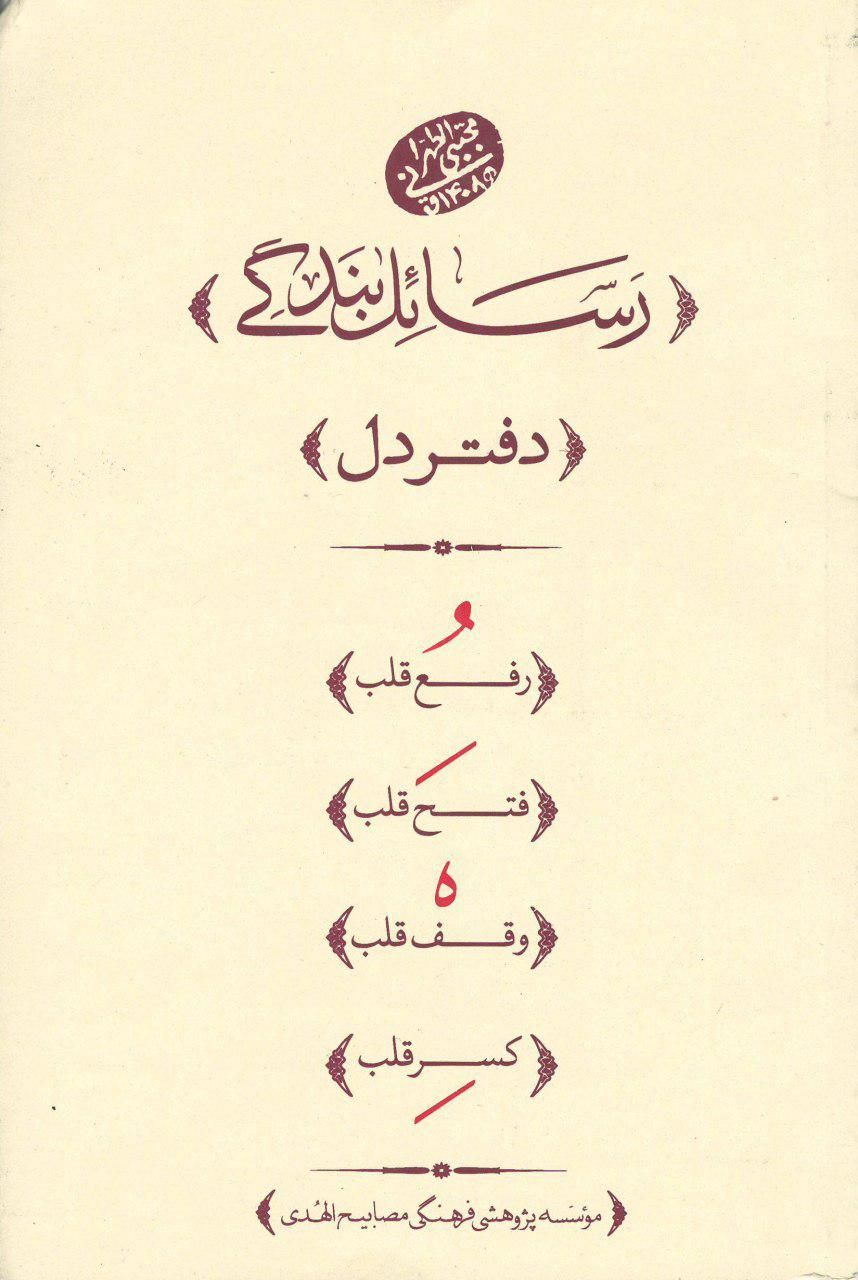 مجتبی الطهرانی
۱۴۰۸ق
رَسائِل بَندِگے
دفتر دل
رفعُ قلب
فتحَ قلب
وقفْ قلب
کسرِ قلب
مؤسّسه پژوهشی فرهنگی مصابیح الهُدی